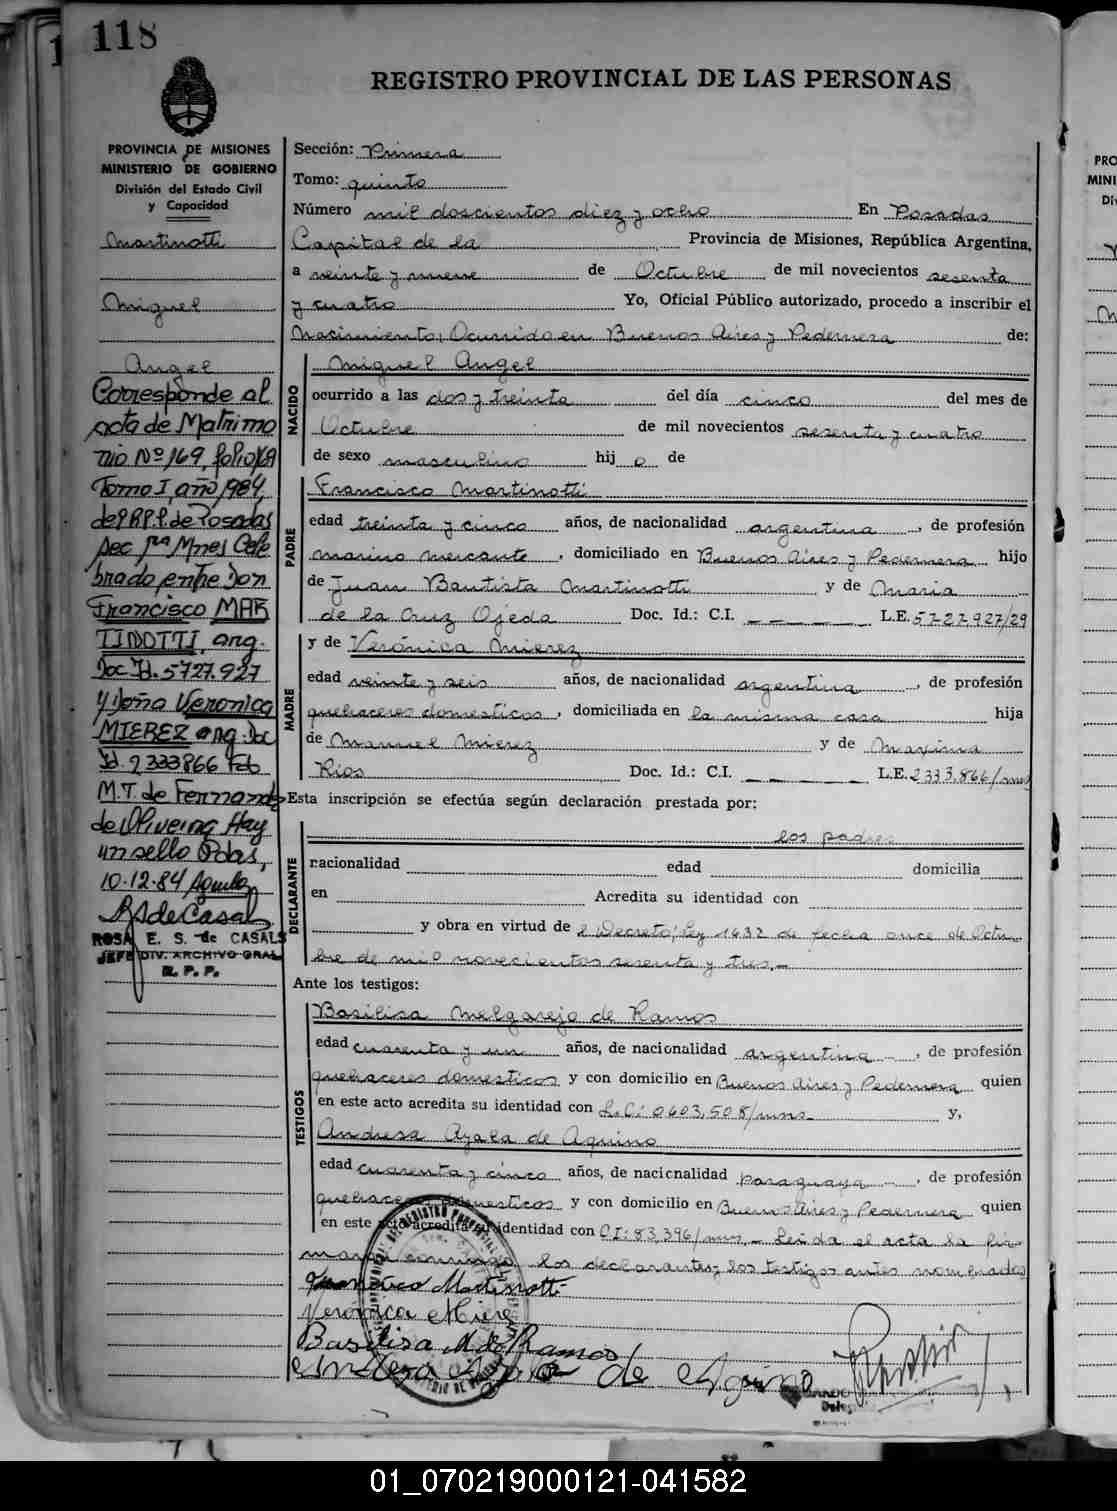 118
REGISTRO PROVINCIAL DE LAS PERSONAS
PROVINCIA DE MISIONES
MINISTERIO DE GOBIERNO
División del Estado Civil
y Capacidad
Martinotti
Miguel
Angel
Corresponde al
acta de Matrimo
nio Nº 169, folio 169
Tomo I, año 1984,
del R.P.P. de Posadas
Sec 1ra Mnes Cele
brado entre Don
Francisco MAR
TINOTTI, arg.
Doc Id. 5727.927
y Doña Veronica
MIEREZ arg. Doc
Id. 2333866 Fdo
M.T. de Fernandez
de Oliveira Hay
un sello Pdas,
10-12-84 Aguilar
RSdeCasals
ROSA E. S. de CASALS
JEFE DIV. ARCHIVO GRAL
R. P. P.
Sección: Primera
Tomo: quinto
Número mil doscientos diez y ocho En Posadas
Capital de la Provincia de Misiones, República Argentina,
a veinte y nueve de Octubre de mil novecientos sesenta
y cuatro Yo, Oficial Público autorizado, procedo a inscribir el
Nacimiento; Ocurrido en Buenos Aires y Pedernera de:
NACIDO
Miguel Angel
ocurrido a las dos y treinta del día cinco del mes de
Octubre de mil novecientos sesenta y cuatro
de sexo masculino hij o de
PADRE
Francisco Martinotti
edad treinta y cinco años, de nacionalidad argentina, de profesión
marino mercante, domiciliado en Buenos Aires y Pedernera hijo
de Juan Bautista Martinotti y de Maria
de la Cruz Ojeda Doc. Id.: C.I. _ _ _ _ _ L.E. 5727.927/29
MADRE
y de Verónica Mierez
edad veinte y seis años, de nacionalidad argentina, de profesión
quehaceres domesticos, domiciliada en la misma casa hija
de Manuel Mierez y de Maxima
Rios Doc. Id.: C.I. _ _ _ _ _ L.E. 2333.866/mns
Esta inscripción se efectúa según declaración prestada por:
DECLARANTE
los padres
nacionalidad edad domicilia
en Acredita su identidad con
y obra en virtud de el Decreto; Ley 1632 de fecha once de Octu-
bre de mil novecientos sesenta y tres.-
Ante los testigos:
TESTIGOS
Basilisa Melgarejo de Ramos
edad cuarenta y un años, de nacionalidad argentina, de profesión
quehaceres domesticos y con domicilio en Buenos Aires y Pedernera quien
en este acto acredita su identidad con L.C: 0603.508/mns- y,
Andresa Ayala de Aquino
edad cuarenta y cinco años, de nacionalidad paraguaya, de profesión
quehaceres domesticos y con domicilio en Buenos Aires y Pedernera quien
en este acto acredita su identidad con CI: 83.396/mns.- Leida el acta la fir-
man conmigo los declarantes y los testigos antes nombrados
Francisco Martinotti
Verónica Mierez
Basilisa M. de Ramos
Andresa Ayala de Aquino
01_070219000121-041582